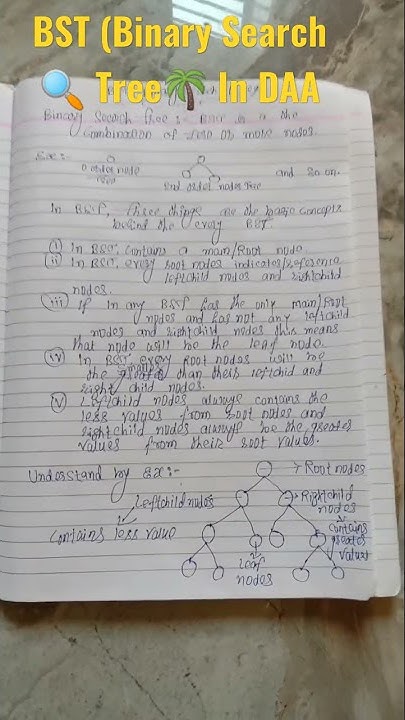 BST (Binary Search
Tree In DAA
Binary Search Tree :- BST is a the
combination of zero or more nodes.
Ex:-
0 order node
Tree
2nd order nodes Tree
and so on.
In BST, three things are the basic concepts
behind the every BST.
(i) In BST, contains a main/Root node.
(ii) In BST, every root nodes indicates/reference
leftchild nodes and rightchild
nodes.
(iii) If in any BST has the only main/Root
nodes and has not any leftchild
nodes and rightchild nodes this means
that node will be the leaf node.
(iv) In BST every Root nodes will be
the greater than their leftchild and
right child nodes.
(v) Leftchild nodes always contains the
less values from root nodes and
rightchild nodes always be the greater
values from their root values.
Understand by Ex:-
→ Root nodes
Leftchild nodes
→ Rightchild
nodes
contains less value
contains
greater
values
leaf
nodes